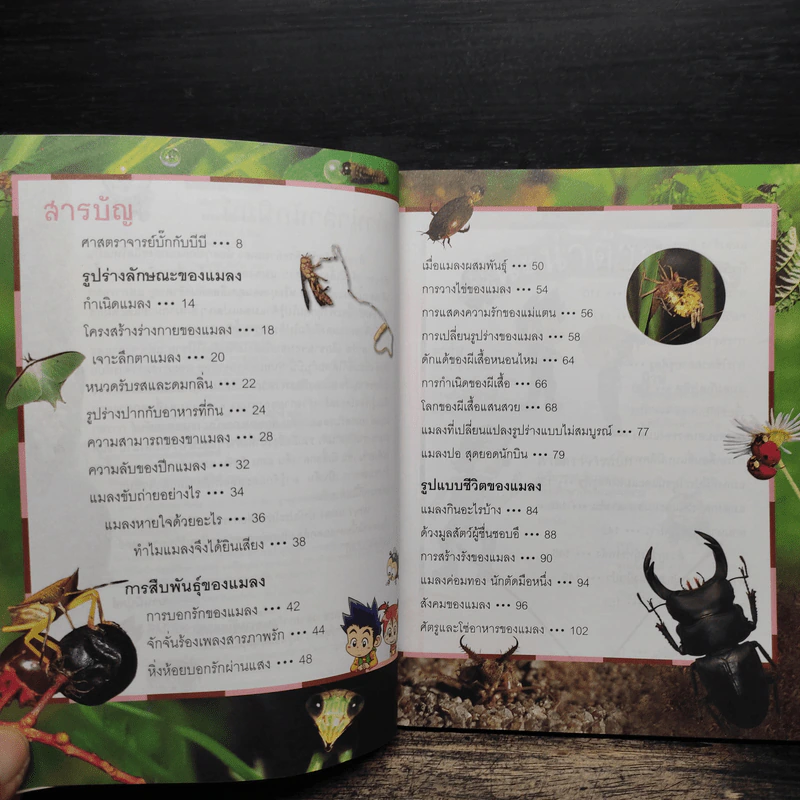 สารบัญ
ศาสตราจารย์บั๊กกับบีบี ••• 8
รูปร่างลักษณะของแมลง
กำเนิดแมลง ••• 14
โครงสร้างร่างกายของแมลง ••• 18
เจาะลึกตาแมลง ••• 20
หนวดรับรสและดมกลิ่น ••• 22
รูปร่างปากกับอาหารที่กิน ••• 24
ความสามารถของขาแมลง ••• 28
ความลับของปีกแมลง ••• 32
แมลงขับถ่ายอย่างไร ••• 34
แมลงหายใจด้วยอะไร ••• 36
ทำไมแมลงจึงได้ยินเสียง ••• 38
การสืบพันธุ์ของแมลง
การบอกรักของแมลง ••• 42
จักจั่นร้องเพลงสารภาพรัก ••• 44
หิ่งห้อยบอกรักผ่านแสง ••• 48
เมื่อแมลงผสมพันธุ์ ••• 50
การวางไข่ของแมลง ••• 54
การแสดงความรักของแม่แตน ••• 56
การเปลี่ยนรูปร่างของแมลง ••• 58
ดักแด้ของผีเสื้อหนอนไหม ••• 64
การกำเนิดของผีเสื้อ ••• 66
โลกของผีเสื้อแสนสวย ••• 68
แมลงที่เปลี่ยนแปลงรูปร่างแบบไม่สมบูรณ์ ••• 77
แมลงปอ สุดยอดนักบิน ••• 79
รูปแบบชีวิตของแมลง
แมลงกินอะไรบ้าง ••• 84
ด้วงมูลสัตว์ผู้ชื่นชอบอึ ••• 88
การสร้างรังของแมลง ••• 90
แมลงค่อมทอง นักตัดมือหนึ่ง ••• 94
สังคมของแมลง ••• 96
ศัตรูและโซ่อาหารของแมลง ••• 102